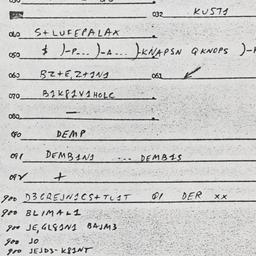 032 KUST1
040 S+LUFEPALAX
050 $ )-P... )-A... )-KNAPSN QKNOPS )-
060 BZ+E,Z+1N1 061
070 B1K81V1HOLC
080 —
090 DEMP
091 DEMB1N1 ... DEMB1S
092 +
900 D3GREJN1CS+TL1T Q1 DER XX
900 BLIMAL1
900 JE,GL81N1 BAJM3
900 JO
900 JEJD3-K81NT